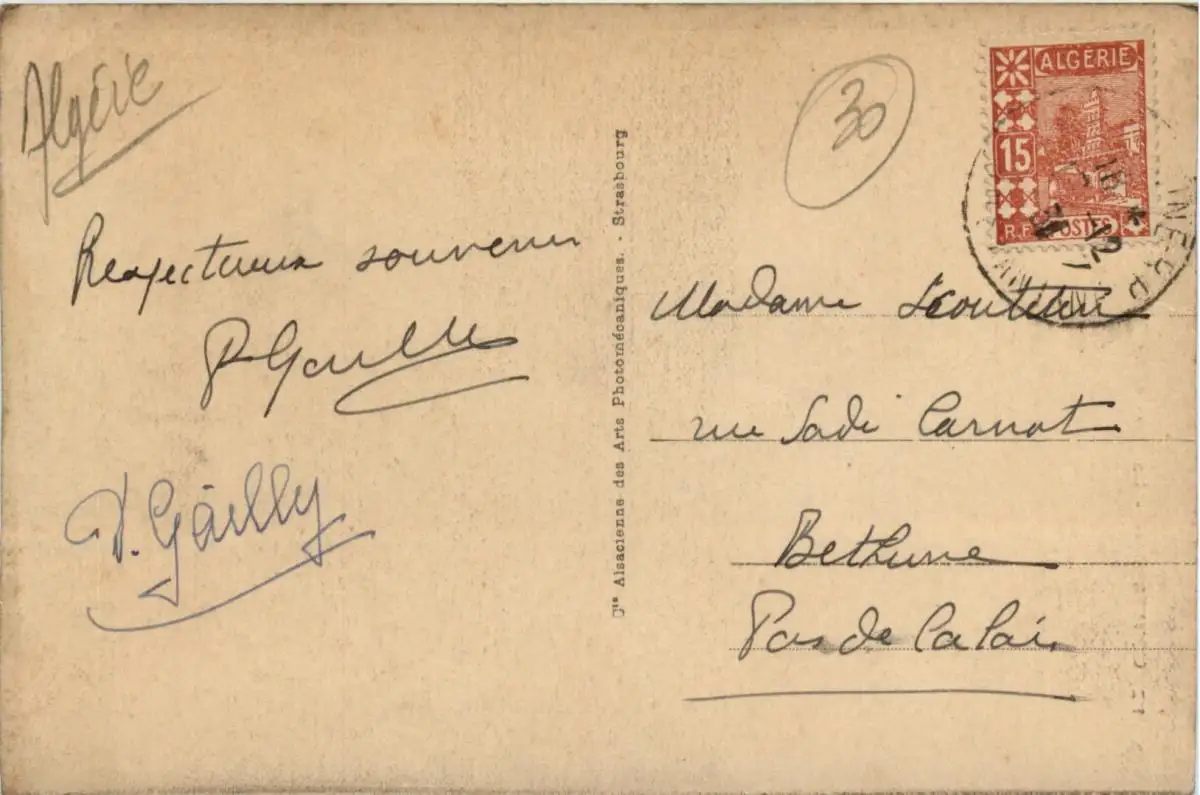 Algérie
Respectueux souvenir
P Gailly
V. Gailly
Cie Alsacienne des Arts Photomécaniques. - Strasbourg
30
ALGÉRIE
15
R.F. POSTES
16 -12
31
Madame
rue Sadi Carnot
Bethune
Pas de Calais